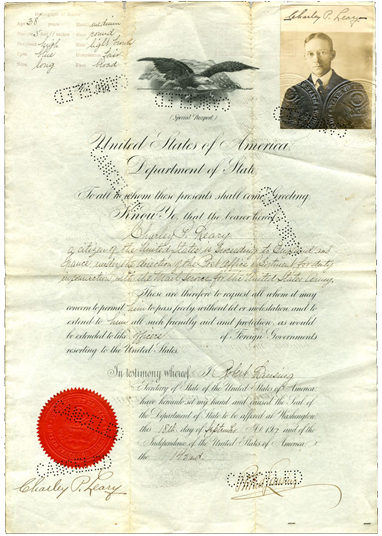 Age 38
Charles P. Leary
CANCELLED
(Special Passport)
United States of America
Department of State,
To all to whom these presents shall come Greeting
Know Ye, that the bearer hereof
Charles P. Leary
a citizen of the United States is proceeding to England and
France, under direction of the Post Office Department for duty
in connection with the Mail Service for the United States Army.
These are therefore to request all whom it may
concern to permit him to pass freely without let or molestation, and to
extend to him all such friendly aid and protection, as would
be extended to like Officers of Foreign Governments
resorting to the United States.
In testimony whereof, I, Robert Lansing
Secretary of State of the United States of America,
have hereunto set my hand and caused the Seal of
the Department of State to be affixed at Washington,
this 18th day of September A.D. 1917 and of the
Independence of the United States of America
the 142nd.
CANCELLED
CANCELLED
Charles P. Leary